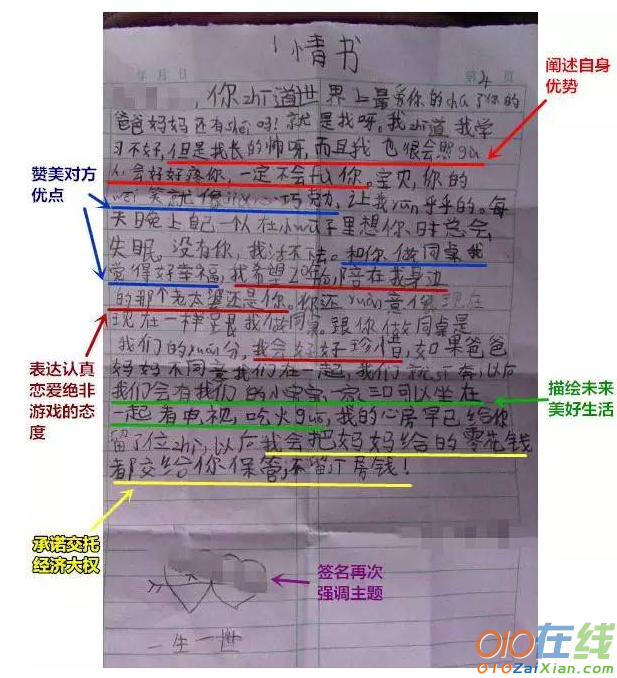 情书
年 月 日
第 4 页
，你zhi道世界上最爱你的chu了你的
爸爸妈妈还有shei吗！就是我呀。我zhi道我学
习不好，但是我长的帅呀，而且我也很会照gu
人，会好好疼你，一定不会piàn你。宝贝，你的
wei笑就像巧克力，让我yun乎乎的。每
天晚上自己一个人在小wu子里想你时总会
失眠。没有你，我活不下去。和你做同桌我
觉得好幸福，我希望20年后，陪在我身边
的那个老太婆还是你。你还yuan意像现在
现在一样 我做同桌。跟你做同桌是
我们的yuan分，我会好好珍惜，如果爸爸
妈妈不同意我们在一起，我们就 ，以后
我们会有我们的小宝宝，一家三口可以坐在
一起看电视，吃火guo，我的心房早已给你
留了位zhi，以后我会把妈妈给的零花钱
都交给你保管，不留一个房钱！
一生一世
阐述自身
优势
赞美对方
优点
表达认真
恋爱绝非
游戏的态
度
描绘未来
美好生活
承诺交托
经济大权
签名再次
强调主题
010在线
010ZaiXian.com